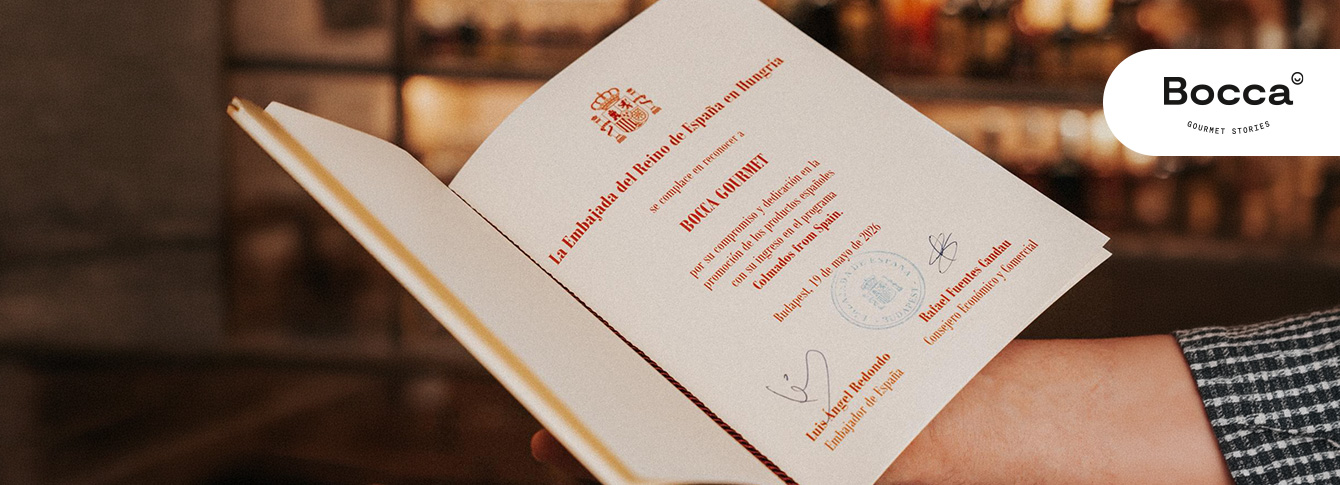 La Embajada del Reino de España en Hungría
se complace en reconocer a
BOCCA GOURMET
por su compromiso y dedicación en la
promoción de los productos españoles
con su ingreso en el programa
Colmados from Spain.
Budapest, 19 de mayo de 2026
Rafael Fuentes Candau
Consejero Económico y Comercial
Luis Ángel Redondo
Embajador de España
BUDAPEST
Bocca
GOURMET STORIES